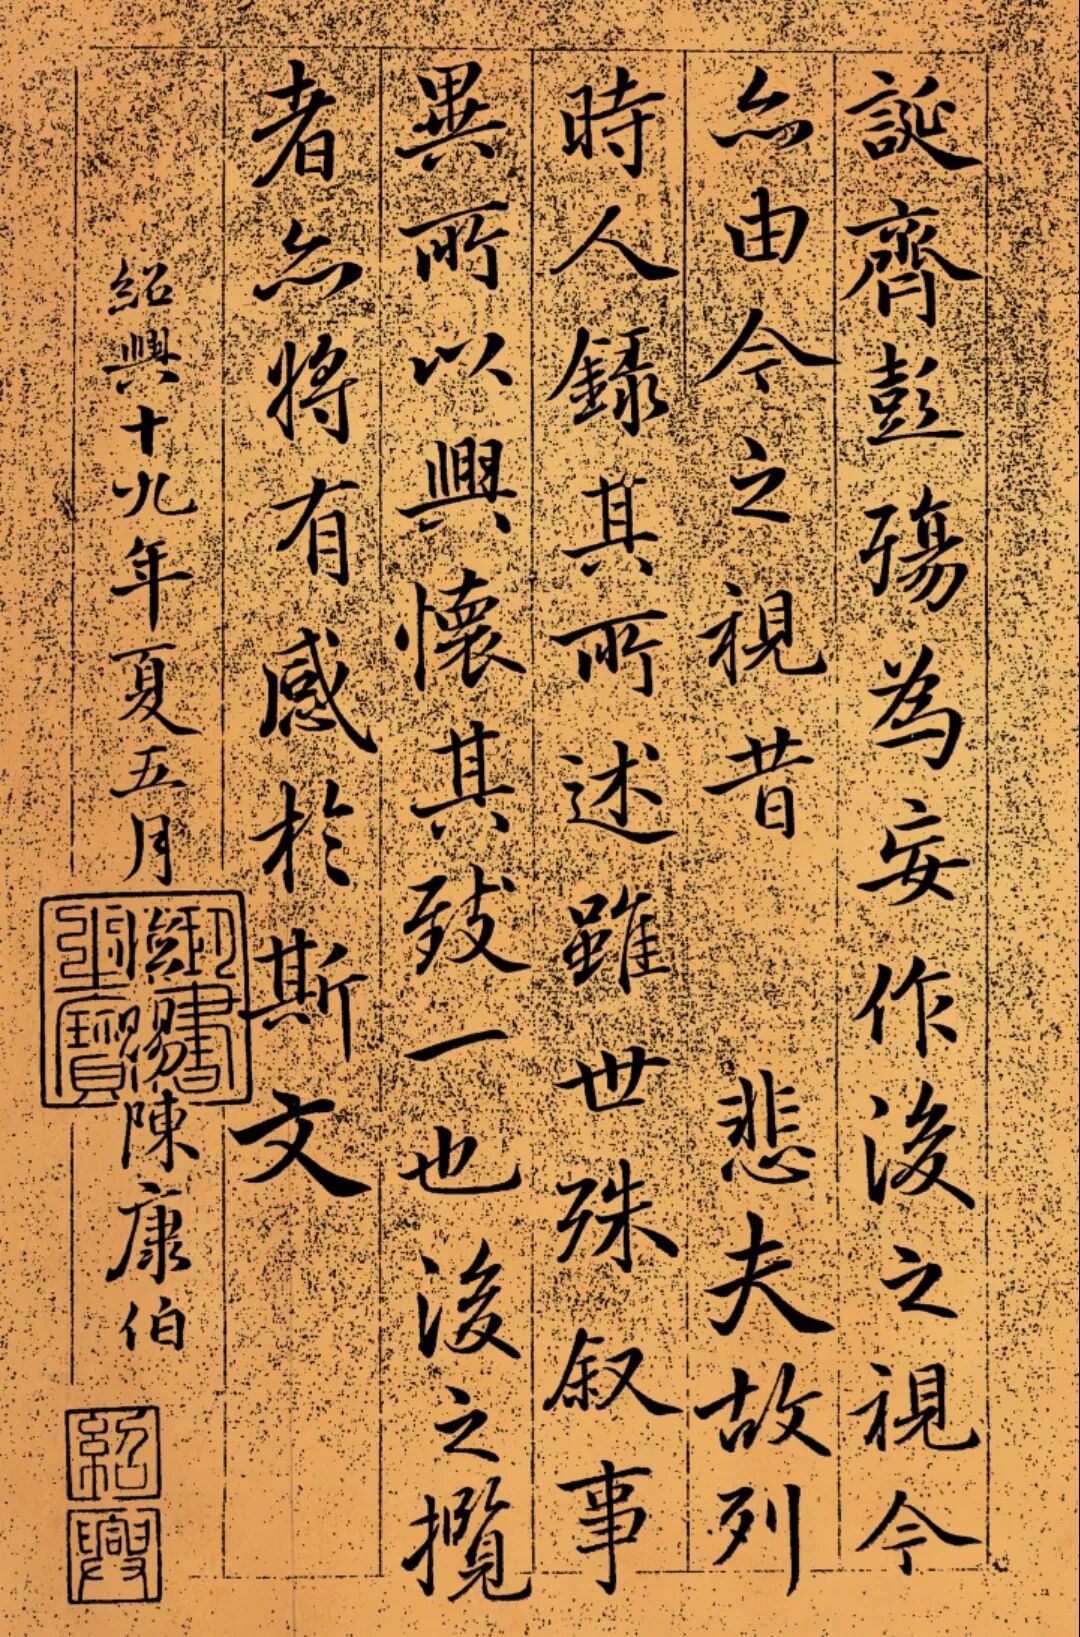 誕齊彭殤為妄作後之視今
亦由今之視昔 悲夫故列
時人錄其所述雖世殊叙事
異所以興懷其致一也後之攬
者亦將有感於斯文
紹興十九年夏五月 賜陳康伯
御書之寶
紹興